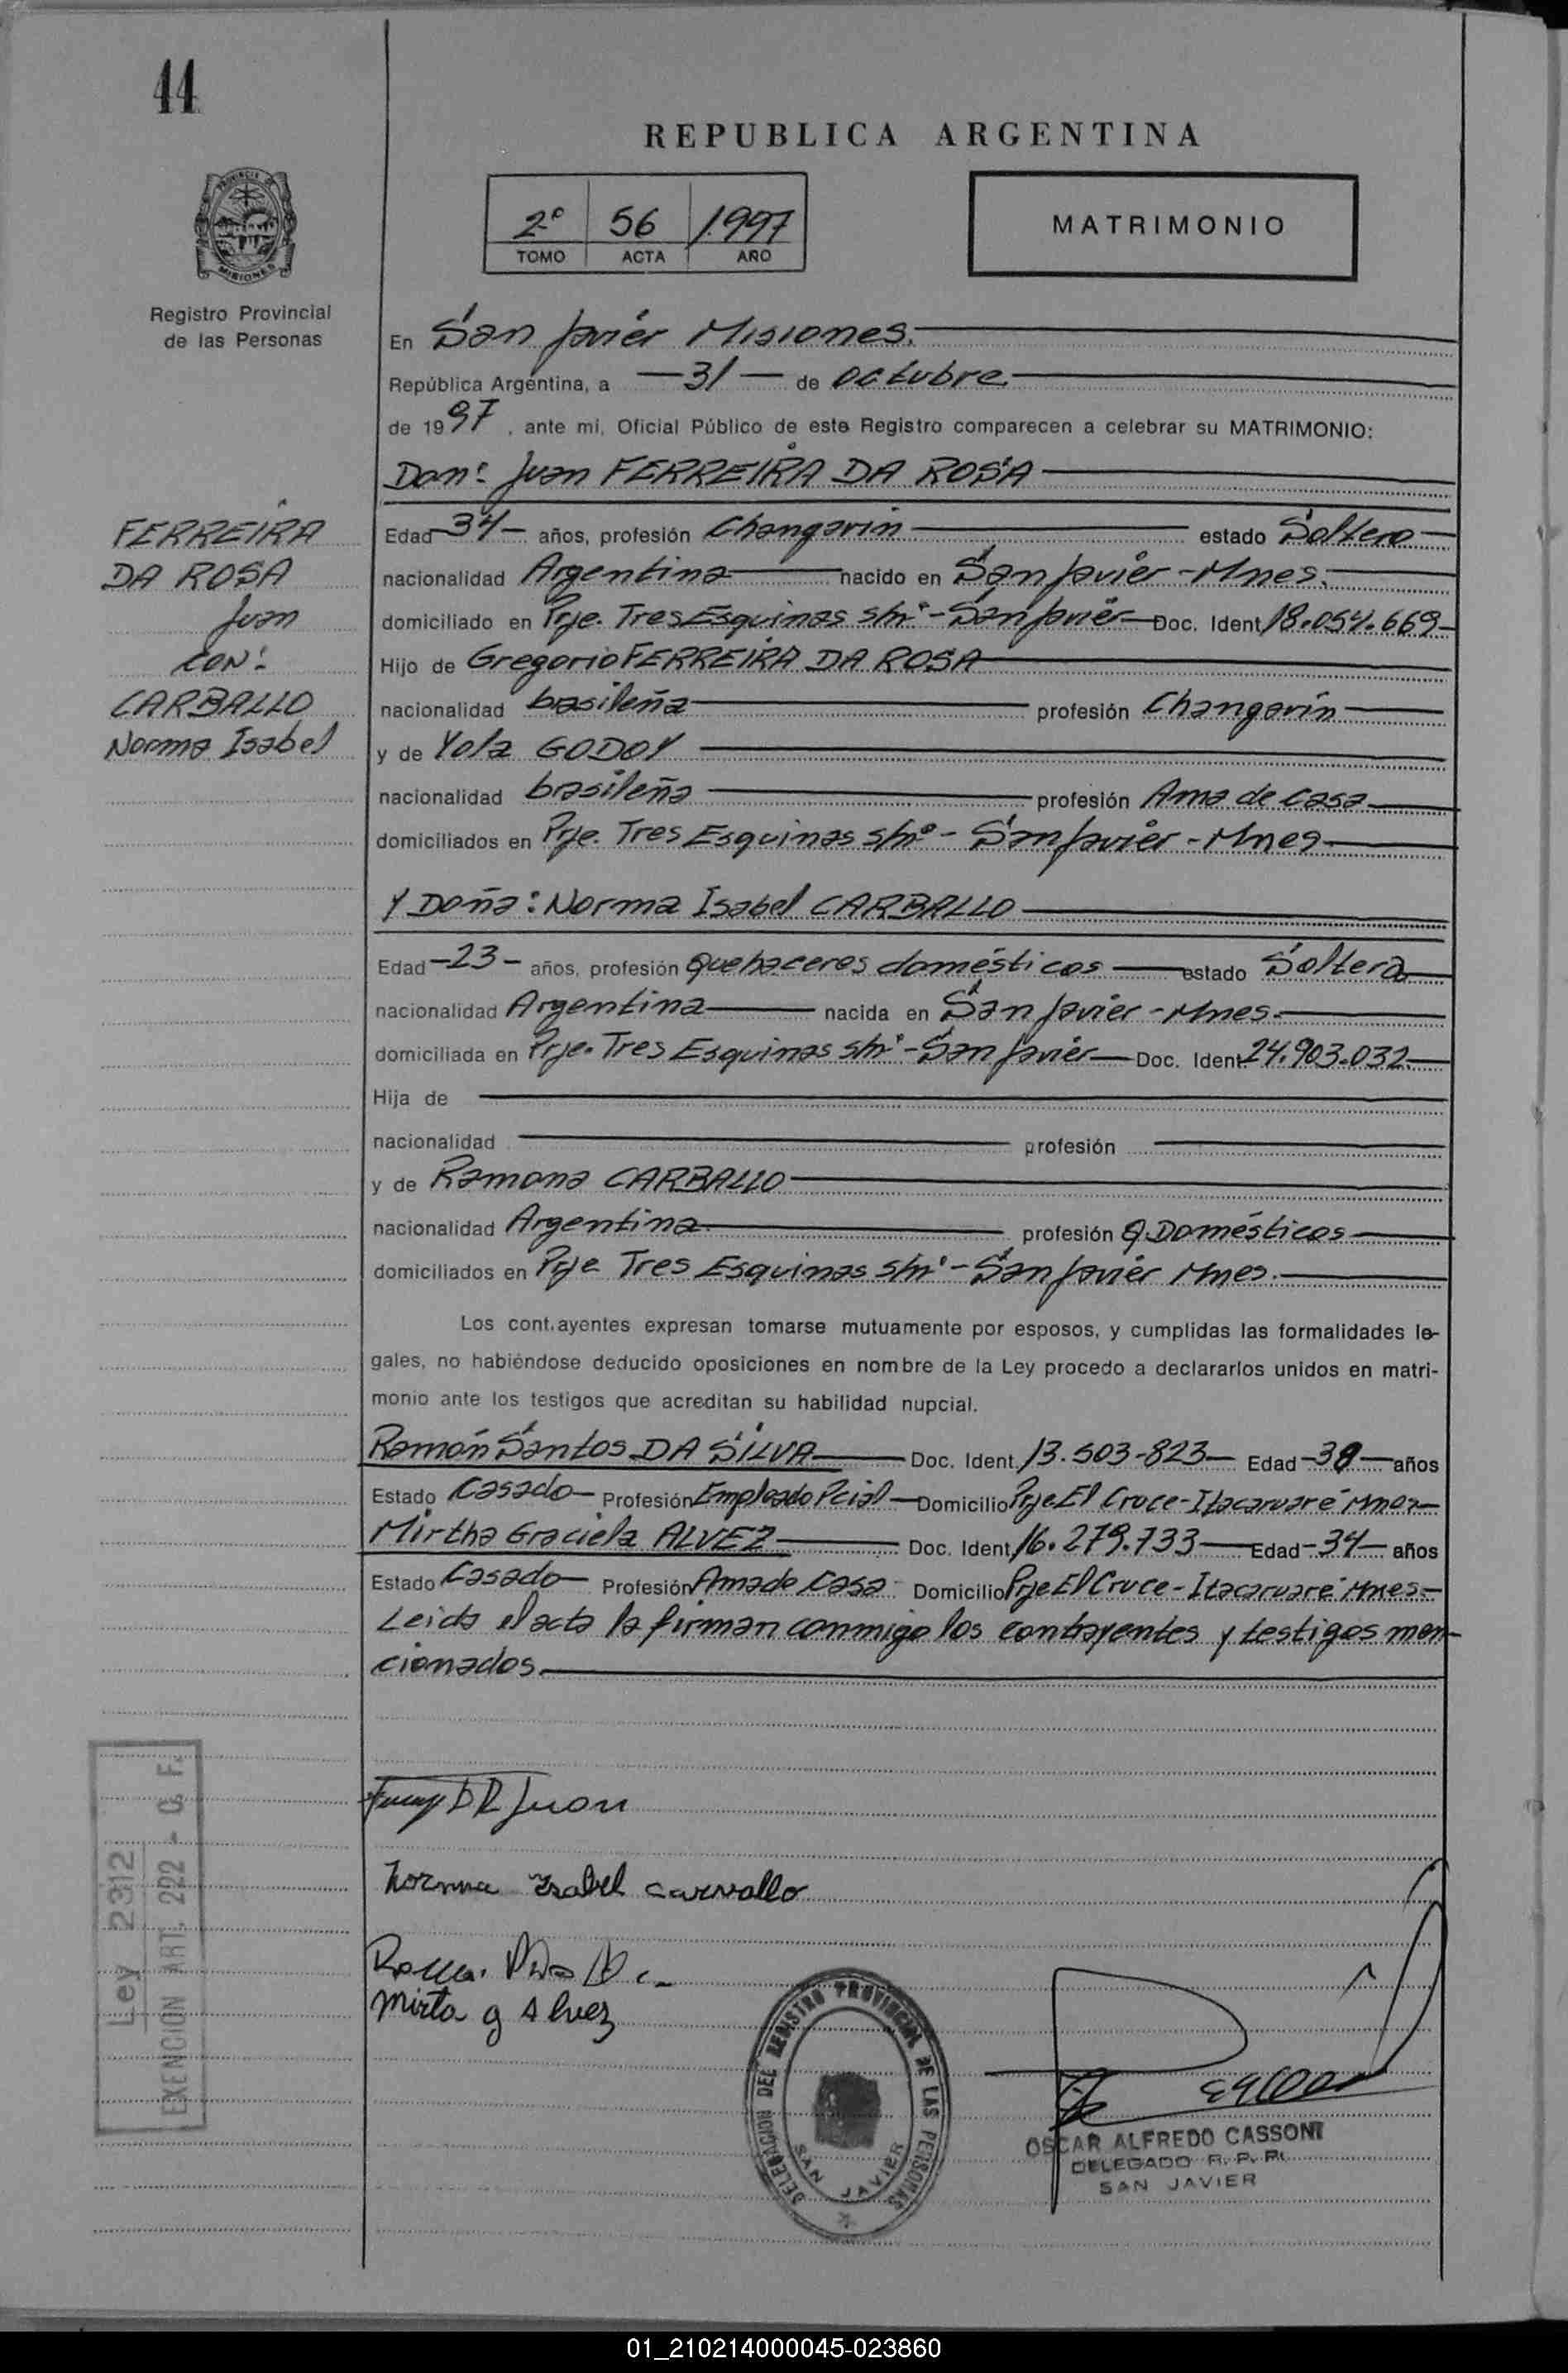 44
REPUBLICA ARGENTINA
2º 56 1997
TOMO ACTA AÑO
MATRIMONIO
PROVINCIA DE
MISIONES
Registro Provincial
de las Personas
En San Javier Misiones.
República Argentina, a —31— de octubre
de 1997, ante mi, Oficial Público de este Registro comparecen a celebrar su MATRIMONIO:
Don: Juan FERREIRA DA ROSA
FERREIRA
DA ROSA
Juan
CON:
CARBALLO
Norma Isabel
Edad —34— años, profesión Changarin estado Soltero
nacionalidad Argentina nacido en San Javier - Mnes.
domiciliado en Prje. Tres Esquinas s/nº - San Javier Doc. Ident. 18.054.669
Hijo de Gregorio FERREIRA DA ROSA
nacionalidad brasileña profesión Changarin
y de Yola GODOY
nacionalidad brasileña profesión Ama de casa
domiciliados en Prje. Tres Esquinas s/nº - San Javier - Mnes
Y Doña: Norma Isabel CARBALLO
Edad —23— años, profesión quehaceres domésticos estado Soltera
nacionalidad Argentina nacida en San Javier - Mnes.
domiciliada en Prje. Tres Esquinas s/nº - San Javier Doc. Ident. 24.903.032
Hija de
nacionalidad profesión
y de Ramona CARBALLO
nacionalidad Argentina profesión Q. Domésticos
domiciliados en Prje Tres Esquinas s/nº - San Javier Mnes.
Los contrayentes expresan tomarse mutuamente por esposos, y cumplidas las formalidades le-
gales, no habiéndose deducido oposiciones en nombre de la Ley procedo a declararlos unidos en matri-
monio ante los testigos que acreditan su habilidad nupcial.
Ramón Santos DA SILVA Doc. Ident. 13.503-823 Edad —38— años
Estado Casado Profesión Empleado Pcial Domicilio Prje El Cruce - Itacaruaré Mnes
Mirtha Graciela ALVEZ Doc. Ident. 16.279.733 Edad —34— años
Estado Casado Profesión Ama de Casa Domicilio Prje El Cruce - Itacaruaré Mnes
Leida el acta la firman conmigo los contrayentes y testigos men-
cionados.
D R Juan
Norma Isabel Carvallo
Mirta g Alvez
Ley 2312
EXENCION ART. 222 - C. F.
DELEGACION DEL REGISTRO PROVINCIAL DE LAS PERSONAS
SAN JAVIER
OSCAR ALFREDO CASSONI
DELEGADO R. P. P.
SAN JAVIER
01_210214000045-023860